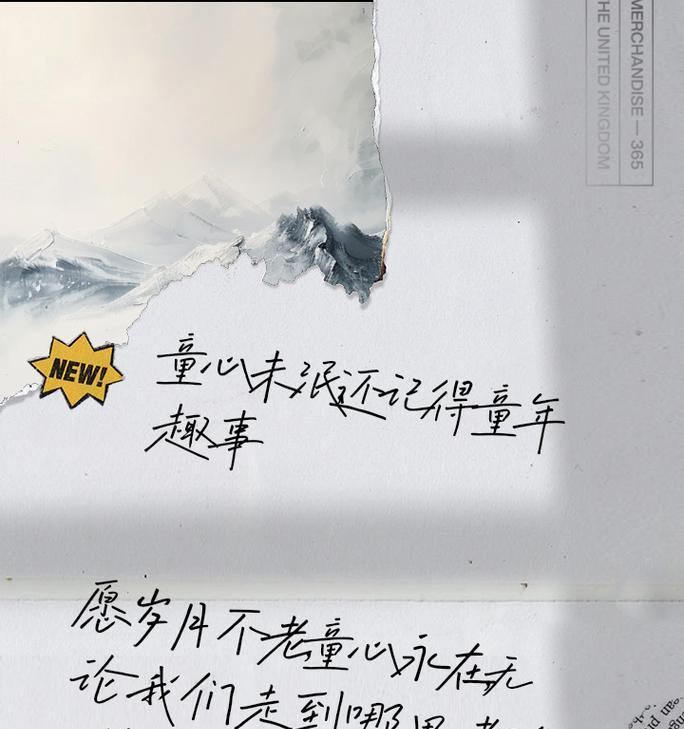 MERCHANDISE — 365
THE UNITED KINGDOM
NEW!
童心未泯还记得童年
趣事
愿岁月不老童心永在无
论我们走到哪里